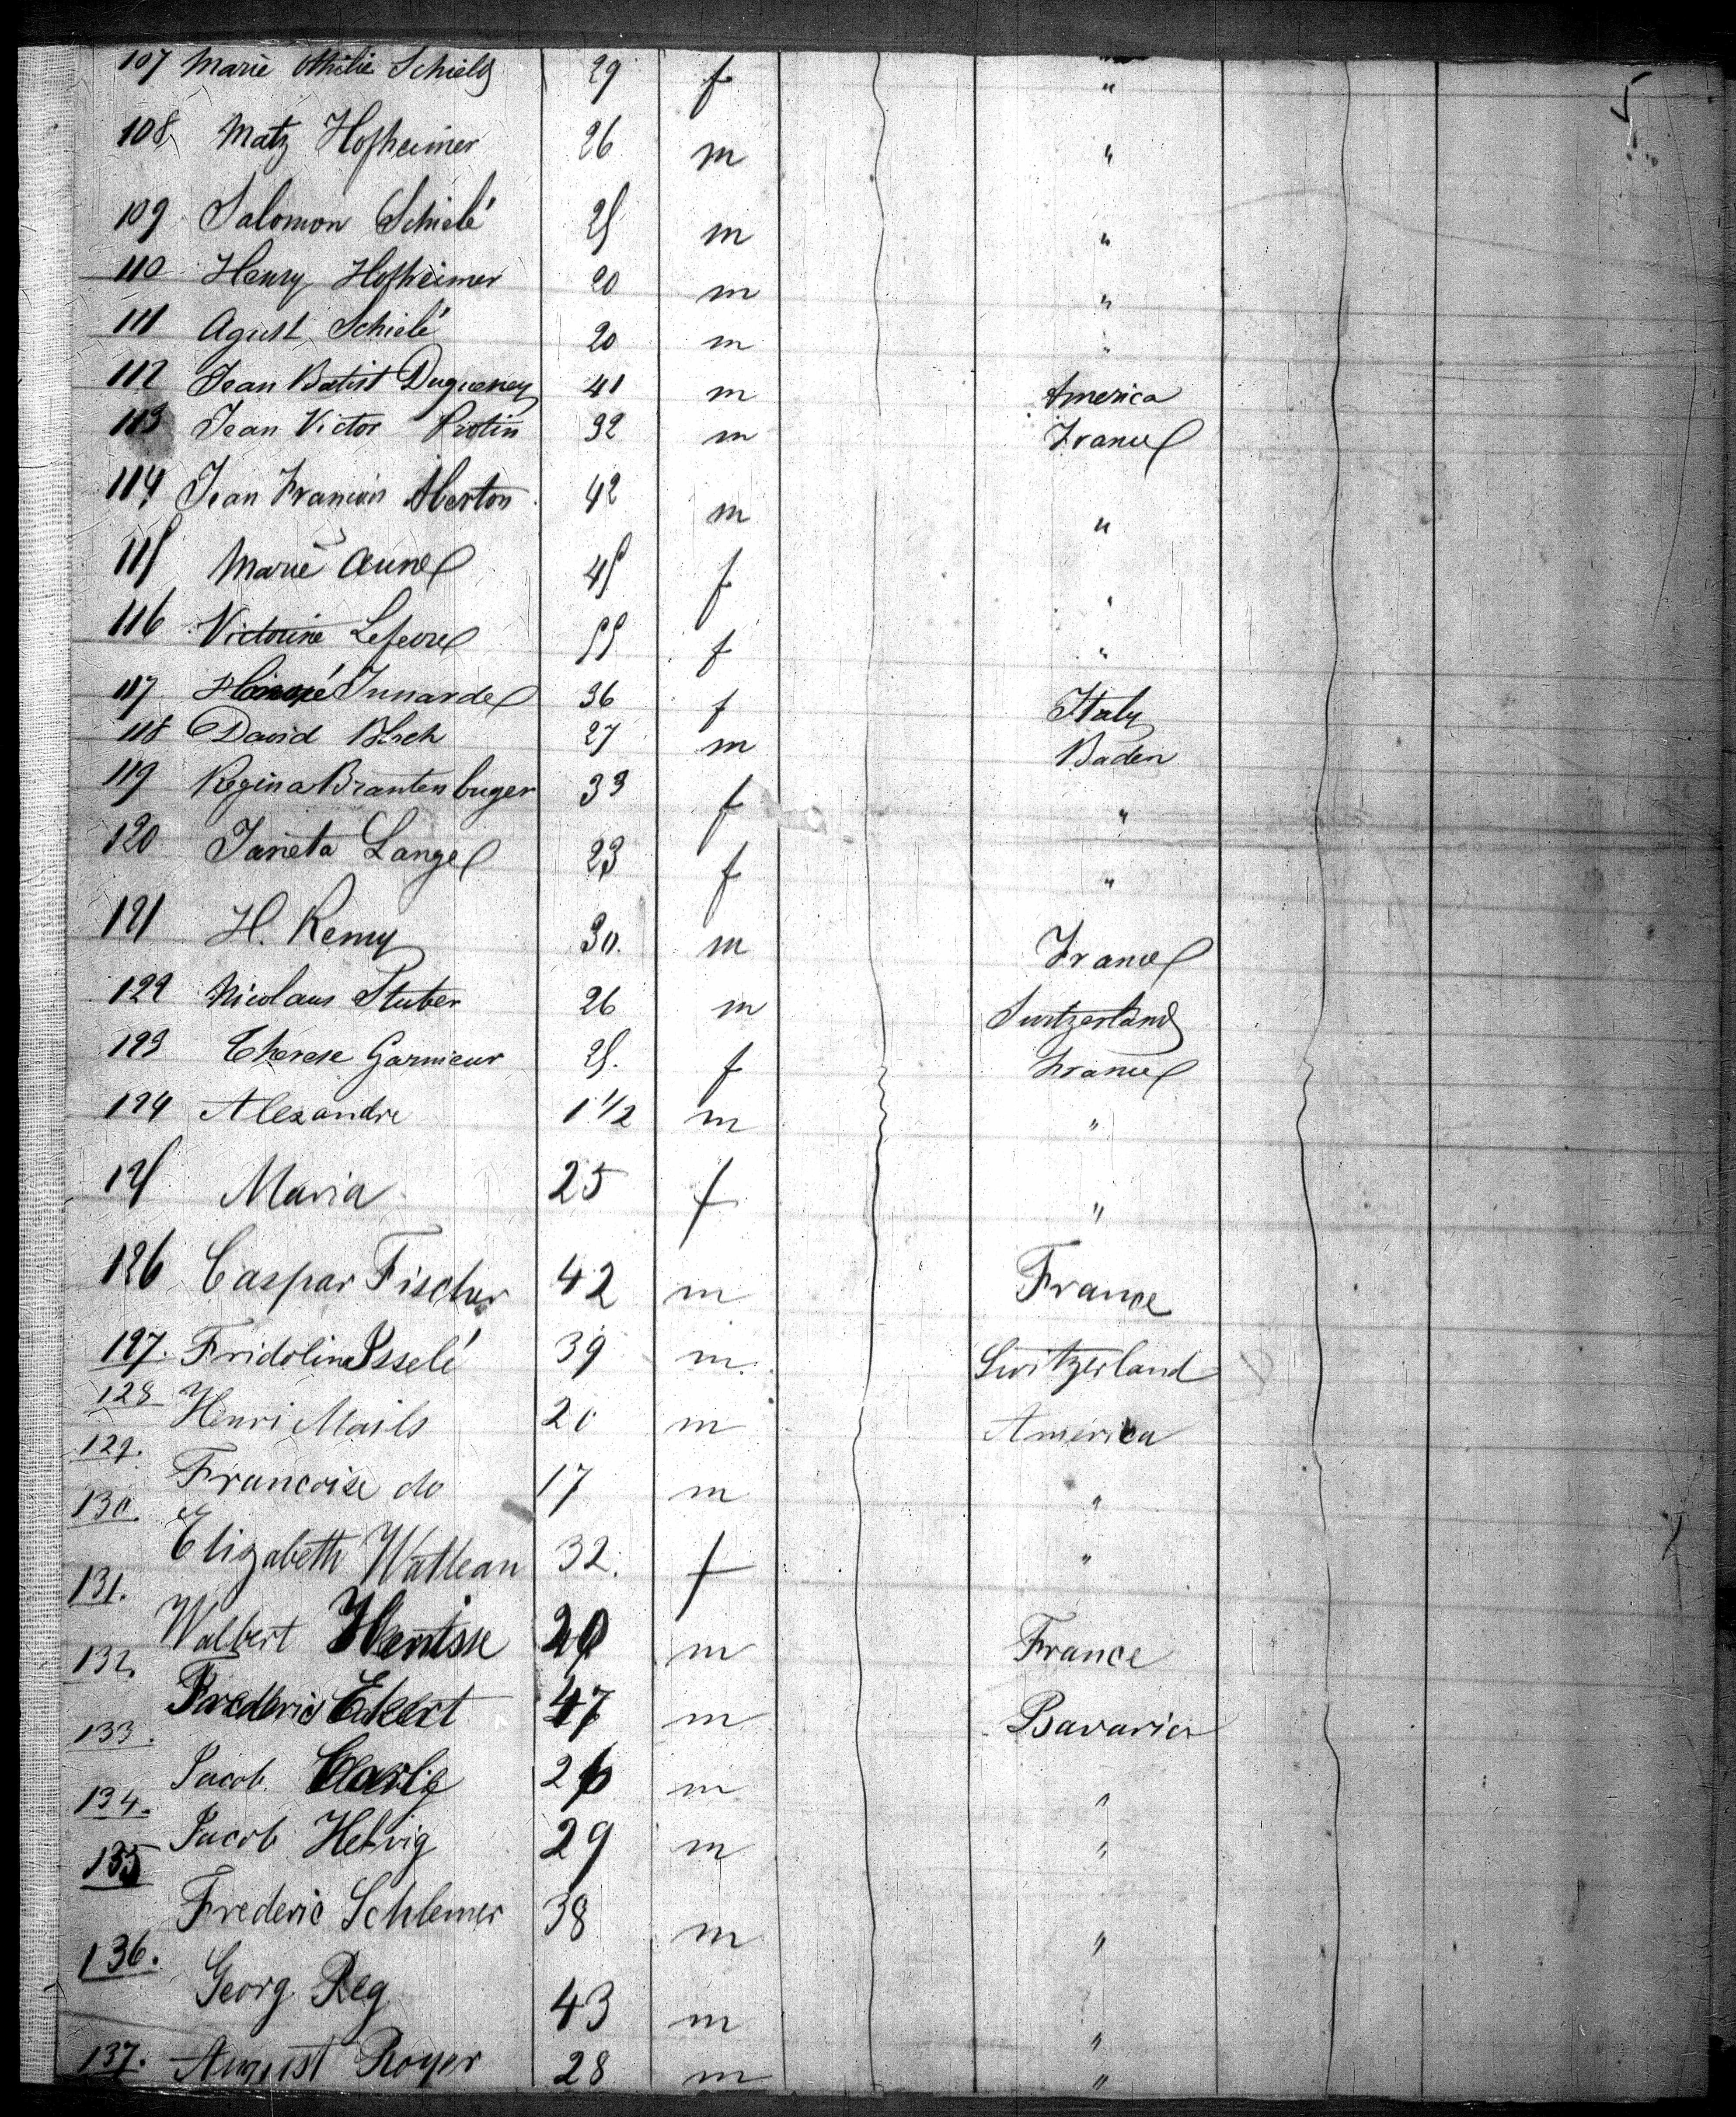 107 Marie Othilie Schield 29 f "
108 Matz Hofheimer 26 m "
109 Salomon Schielé 25 m "
110 Henry Hofheimer 20 m "
111 Agust Schielé 20 m "
112 Jean Batist Dugueney 41 m America
113 Jean Victor 32 m France
114 Jean Francois Aberton 42 m "
115 Marie Anne 45 f "
116 Victorine Lefevre 55 f "
117 36 f Italy
118 David Bloch 27 m Baden
119 Regina Brantenbuger 33 f "
120 Janeta Lange 23 f "
121 H. Remy 30. m France
122 Nicolaus Stuber 26 m Switzerland
123 Therese Garnieur 25. f France
124 Alexandre 1 1/2 m "
125 Maria 25 f "
126 Caspar Fischer 42 m France
127. Fridolin Isselé 39 m. Switzerland
128 Henri Mails 20 m America
129. Francoise do 17 m "
130. Elizabeth Watlean 32. f "
131. Walbert m France
132. Frederic Ekert 47 m Bavaria
133. Jacob 26 m "
134. Jacob Helvig 29 m "
135 Frederic Schlemer 38 m "
136. Georg Reg 43 m "
137. August Royer 28 m "